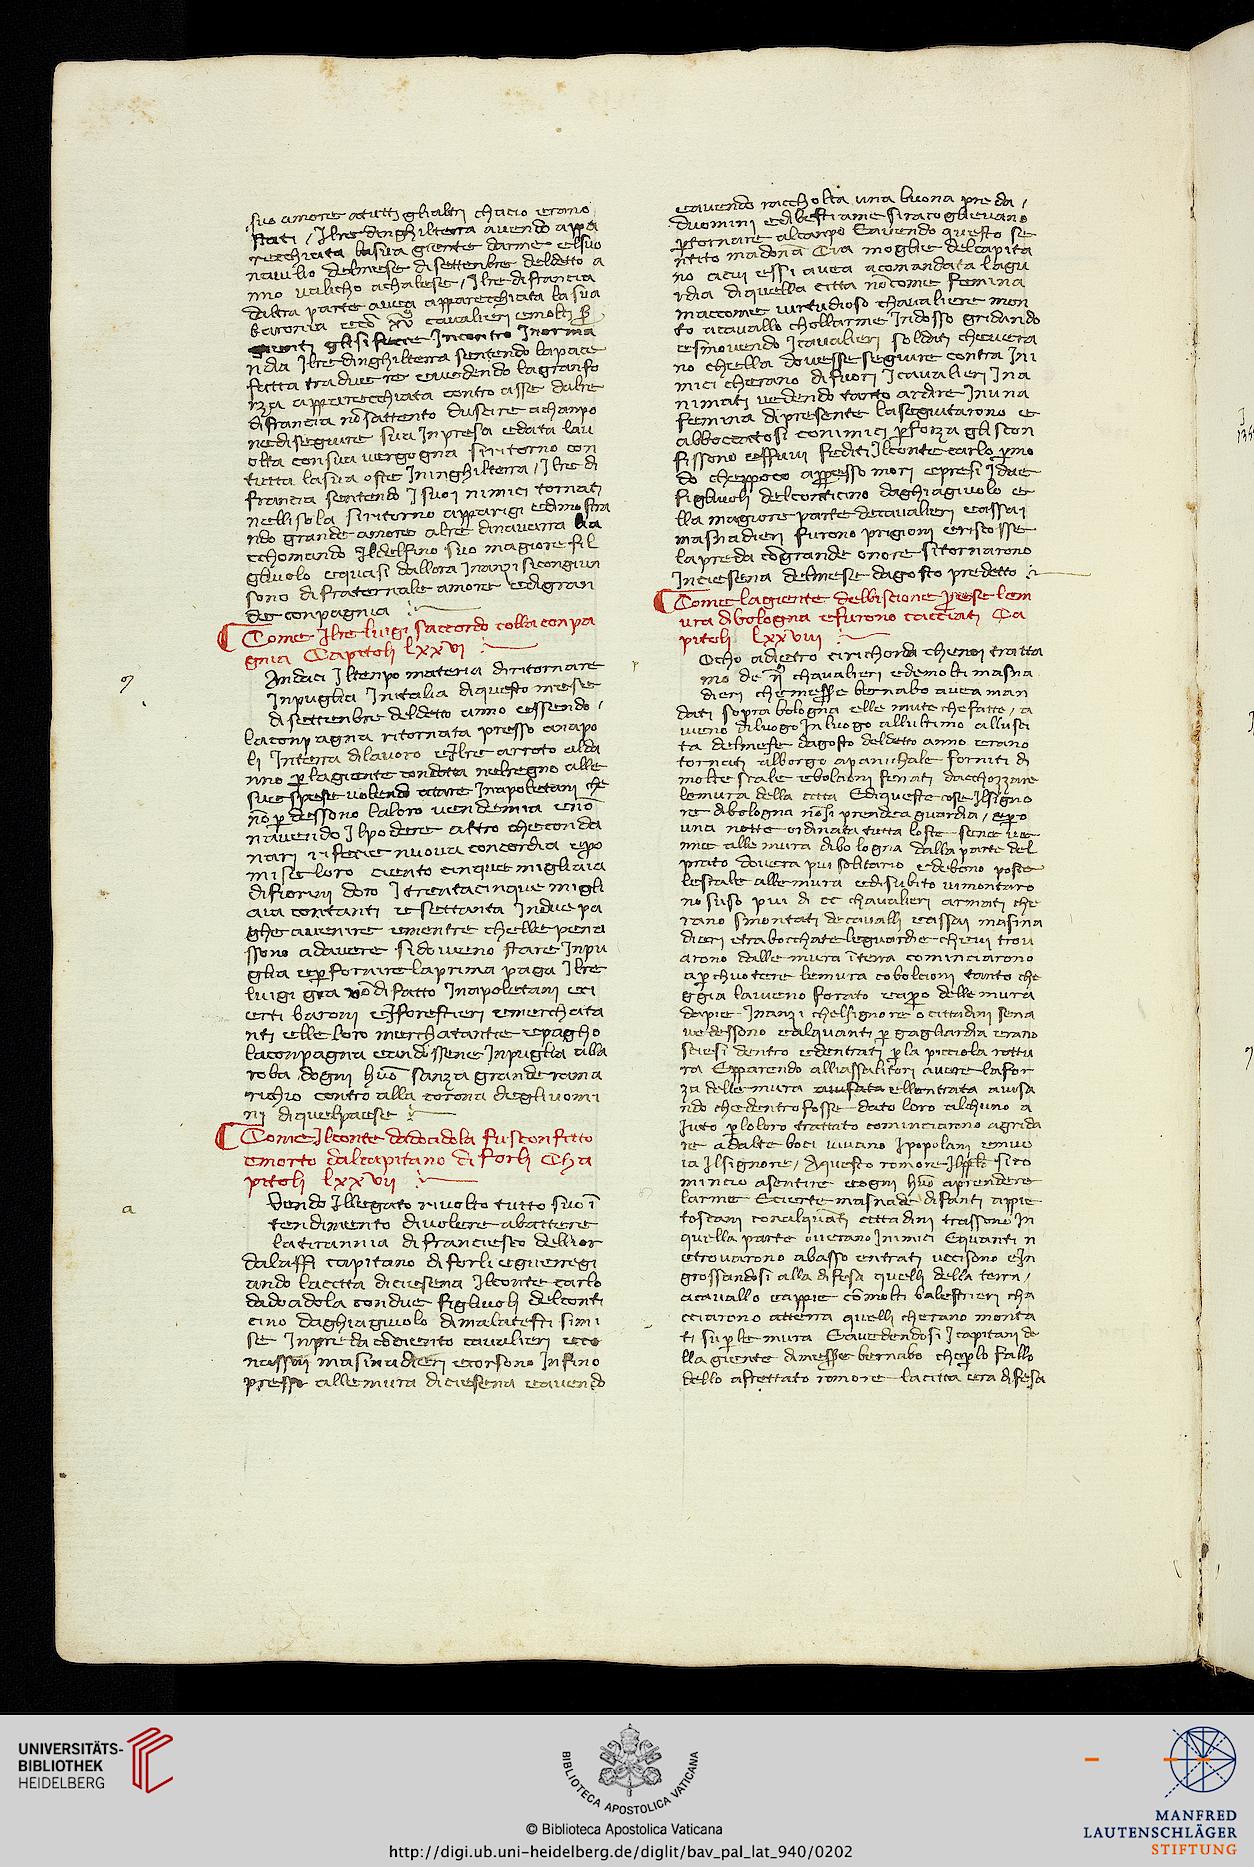 suo amore atutti glialtri chacio erano
stati / Ilre dinghilterra avendo appa
recchiata lasua giente darme elsuo
navilio delmese disettenbre deldetto a
nno valicho achalese / Ilre difrancia
daltra parte avea apparecchiata lasua
baronia
glisifecie Incontro Inorma
ndia Ilre dinghilterra sentendo lapace
fatta tradue re evedendo lagranfo
rza apparecchiata contro asse dalre
difrancia nōsattento duscire achanpo
nediseguire sua Inpresa edata lau
olta consua vergogna siritorno con
tutta lasua oste Ininghilterra / Ilre di
francia sentendo Isuoi nimici tornati
nellisola siritorno apparigi edimostra
ndo grande amore alre dinavarra lia
cchomando Ildelfino suo magiore fil
gluolo equasi dallora Inanzi sicongiun
sono difraternale amore edigran
de conpagnia
Come Ilre luigi saccordo colla conpa
gnia Capitoli lxxvi
Andaci Iltenpo materia diritornare
Inpuglia Initalia diquesto mese
disettenbre deldetto anno essendo
laconpagnia ritornata presso anapo
li Interra dilavoro eIlre arroto alda
nno ꝑlagiente condotta nelregno alle
sue spese volendo atare Inapoletani che
nō ꝑdessono laloro vendemia enō
navendo Ilpodere altro checon da
nari rifecie nuova concordia epo
mise loro ciento cinque migliaia
difiorini doro Itrentacinque migli
aia contanti esettanta Indue pa
ghe avenire ementre chelle pena
ssono adavere sidoveno stare Inpu
glia eꝑfornire laprima paga Ilre
luigi gravō difatto Inapoletani eci
erti baroni eIforestieri emerchata
nti elle loro merchatantie epagho
laconpagna econdossene Inpuglia alla
roba dogni huō sanza grande rama
richio contro alla corona degliuomi
ni diquelpaese
Come Ilconte dadoadola fusconfitto
emorto dalcapitano di forli Cha
pitoli lxxvii
Vendo Illegato rivolto tutto suo ī
tendimento divolere abattere
latirannia difranciesco dellor
dalaffi capitano diforli eguerregi
ando lacitta diciesena Ilconte carlo
dadoadola condue figluoli delconti
cino daghiagiuolo dimalatesti simi
se Inpreda cōciento cavalieri eco
nassai masinadieri ecorsono Infino
presso allemura diciesena eavendo
eavendo raccholta una buona preda /
duomini edibestiame siracoglievano
ꝑtornare alcanpo Eavendo questo se
ntito madonna Cia moglie delcapita
no acui essi avea acomandata lagu
rdia diquella citta nōcome femina
maccome virtudioso chavaliere mon
to acavallo chollarme Indosso gridando
esmovendo Icavalieri soldati chevera
no chella dovesse seguire contra Ini
mici cherano difuori Icavalieri Ina
nimati vedendo tanto ardire Inuna
femina dipresente laseguitarono e
abboccatosi conimici ꝑforza gliscon
fissono effuvi fediti Ilconte carlo ꝑmo
do cheppoco appresso mori epresi Idue
figluoli delconticino daghiagiuolo e
lla magiore parte decavalieri eassai
masnadieri furono prigioni eriscosse
lapreda cōgrande onore sitornarono
Inciesena delmese dagosto predetto
Come lagiente dellbiscione prese lem
ura dibologna efurono cacciati Ca
pitoli lxxviii
Ocho adietro ciricorda chenoi tratta
mo de chavalieri edemolti masna
dieri chemesse bernabo avea man
dati sopra bologna elle mute chefatte / a
veno diluogo Inluogo allultimo allusci
ta delmese dagosto deldetto anno erano
tornati alborgo apanichale forniti di
molte scale ebolcioni ferrati dacchozzare
lemura della citta Ediqueste cose Ilsigno
re dibologna nōsi prendea guardia /
una notte ordinata tutta loste senve ve
nne alle mura dibologna dalla parte del
prato dovera piu solitario edebono poste
lescale allemura edisubito vimontaro
no suso piu di cc chavalieri armati che
rano smontati decavalli eassai masina
dieri etrabocchate leguardie chevi trov
arono dalle mura īterra cominciarono
aꝑchuotere lemura cobolcioni tanto che
ggia laveno forato eaꝑto dellemura
dapie Inanzi chelsignore o cittadini sena
vedessono ealquanti ꝑ gagliardia erano
sciesi dentro edentrati ꝑla picciola rottu
ra Epparendo alliassalitori avere lafor
za delle mura ellentrata avisa
ndo chedentro fosse dato loro alchuno a
iuto ꝑloloro trattato cominciarono agrida
re adalte boci vivano Ipopolani emuo
ia Ilsignore / Aquesto romore sico
mincio asentire eogni huō aprendere
larme Ecierte masnade difanti appie
toscani conalquāti cittadini trassono In
quella parte overano Inimici Equanti n
etrovarono abasso entrati uccisono eIn
grossandosi alla difesa quelli della terra /
acavallo eappie cōmolti balestrieri cha
cciarono atterra quelli cherano monta
ti suꝑle mura Eavedendosi Icapitani de
lla giente dimesse bernabo cheꝑlo fallo
dello afrettato romore lacitta era difesa
a
UNIVERSITÄTS-
BIBLIOTHEK
HEIDELBERG
BIBLIOTECA APOSTOLICA VATICANA
© Biblioteca Apostolica Vaticana
http://digi.ub.uni-heidelberg.de/diglit/bav_pal_lat_940/0202
MANFRED
LAUTENSCHLÄGER
STIFTUNG